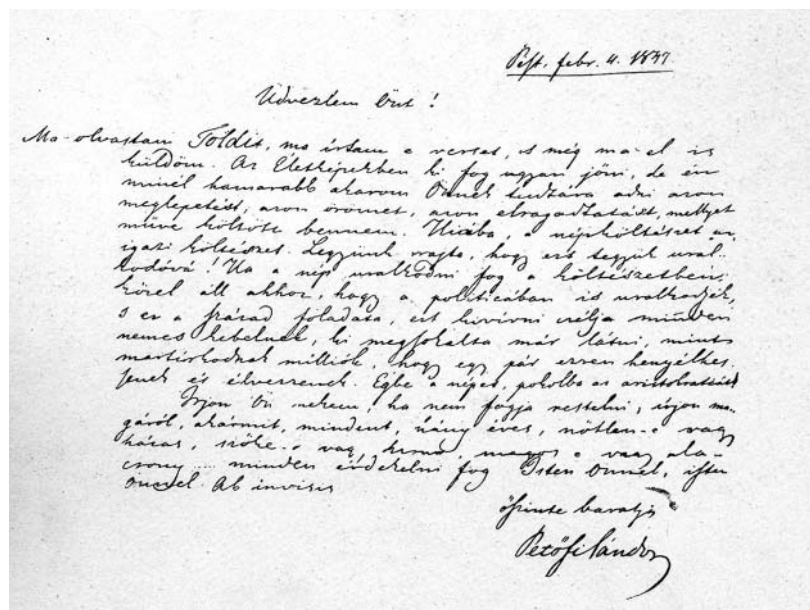 Pest, febr. 4. 1847
Üdvezlem Önt!
Ma olvastam Toldit, ma írtam e verset, s még ma el is
küldöm. Az Életképekben ki fog ugyan jőni, de én
minél hamarabb akarom Önnek tudtára adni azon
meglepetést, azon örömet, azon elragadtatást, mellyet
műve költött bennem. Hiába, a népköltészet az
igazi költészet. Legyünk rajta, hogy ezt tegyük ural-
kodóvá! Ha a nép uralkodni fog a költészetben,
közel áll ahhoz, hogy a politicában is uralkodjék,
s ez a század föladata, ezt kivívni czélja minden
nemes kebelnek, ki megsokalta már látni, mint
martírkodnak milliók, hogy egy pár ezren henyélhes-
senek és élvezzenek. Égbe a népet, pokolba az aristokratiát!
Irjon Ön nekem, ha nem fogja restelni, irjon ma-
gáról, akármit, mindent, hány éves, nőtlen-e vagy
házas, szőke-e vagy barna, magas-e vagy ala-
csony ... minden érdekelni fog Isten Önnel, isten
Önnel. Ab invisis
őszinte barátja
Petőfi Sándor